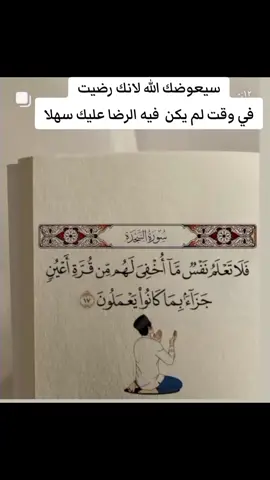 سيعوضك الله لانك رضيت
في وقت لم يكن فيه الرضا عليك سهلا
سُورَةُ السَّجْدَةِ
فَلَا تَعْلَمُ نَفْسٌ مَّآ أُخْفِىَ لَهُم مِّن قُرَّةِ أَعْيُنٍ
جَزَآءًۢ بِمَا كَانُوا۟ يَعْمَلُونَ ١٧